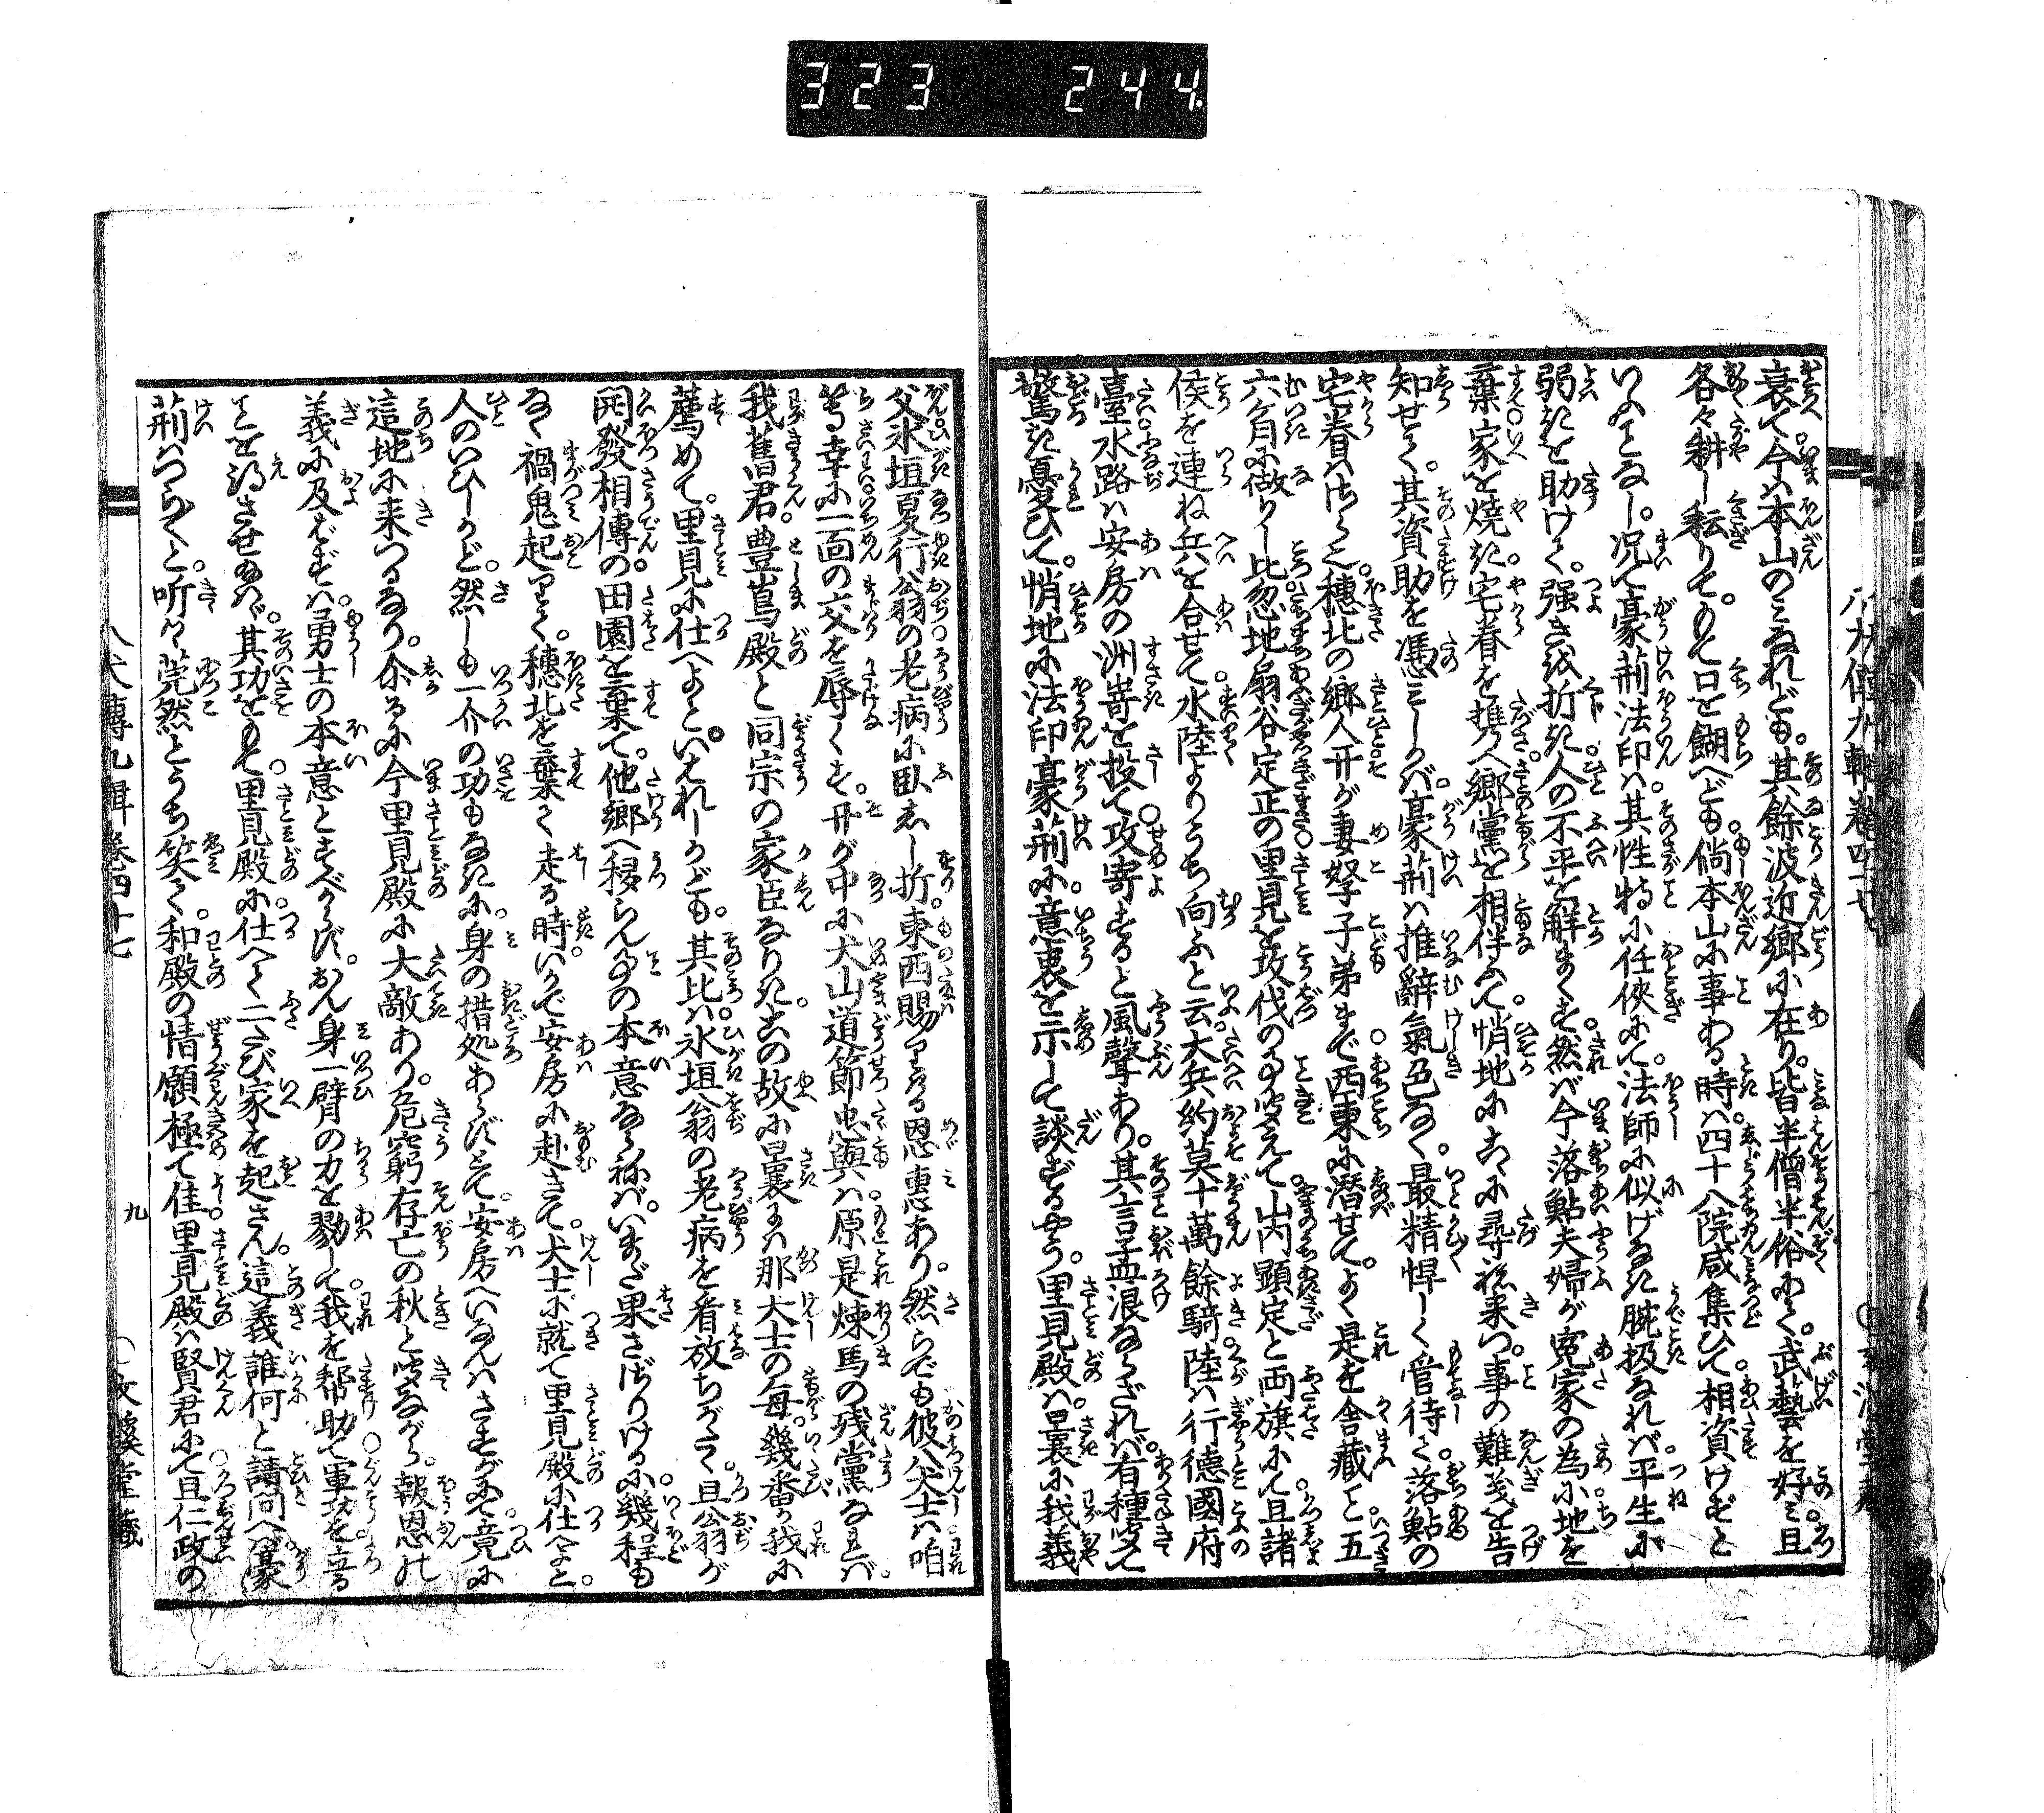 323 244.
衰て今ハ本山のミなれども。其餘波近郷に在り。皆半僧半俗にて。武藝を好ミ且
各々耕し耘りて。もて口を餬へども。倘本山に事ある時ハ。四十八院咸集ひて。相資けずと
いふことなし。况て豪荊法印ハ。其性特に任俠にて。法師に似げなき腕扱なれバ。平生に
弱きを助けて。强きを折き。人の不平を解まくす。然バ今落鮎夫婦が寃家の為に地を
棄。家を燒き。宅眷を携へ。鄉黨を相伴ふて。悄地にこゝに尋ね來つ。事の難義を告
知せて。其資助を憑ミしかバ。豪荊ハ推辭氣色なく。最精悍しく管待て。落鮎の
宅眷ハさら也。穗北の鄉人幷が妻孥子弟まで。西東に潜せて。よく是を舍藏こと五
六个月に做りし比。忽地扇谷定正の里見を攻伐の事聞えて。山内顯定と両旗にて。且諸
侯を連ね兵を合せて。水陸よりうち向ふと云。大兵約莫十萬餘騎。陸ハ行德國府
臺。水路ハ安房の洲嵜を投て。攻寄すると風聲あり。其言孟浪ならざれバ。有種聞て
驚き憂ひて。悄地に法印豪荊に。意衷を示して談ずるやう。里見殿ハ。曩に我義
父氷垣夏行翁の老病に臥し折。東西賜りたる恩惠あり。然らでも彼八犬士ハ。咱
等幸に一面の交を辱くす。幷が中に犬山道節忠與ハ。原是煉馬の殘黨なれバ。
我舊君豊嶌殿と同宗の家臣なりき。この故に曩にハ那犬士の毎。幾番か我に
薦めて。里見に仕へよといはれしかども。其比ハ。氷垣翁の老病を看放ちがたく。且翁が
開發相傳の田園を棄て。他鄉へ移らん事の本意ならねバ。いまだ果さゞりけるに。幾程も
なく禍鬼起りて。穗北を棄て走る時。いかで安房に赴きて。犬士に就て里見殿に仕へよと。
人のいひしかど。然しも一介の功もなきに。身の措処あらずとて。安房へいなんハさすがにて。竟に
這地に來つるなり。介るに今里見殿に大敵あり。危窮存亡の秋と聞ながら。報恩の
義に及ばずハ。勇士の本意とすべからず。おん身一臂の力を勠して。我を幇助て軍功を立る
ことを得させ給ハゞ。其功をもて。里見殿に仕へて二たび家を起さん。這義誰何と請問へバ。豪
荊ハつら〳〵と。听つゝ莞然とうち笑て。和殿の情願極て佳。里見殿ハ賢君にて。且仁政の
八犬傳九輯卷四十七
九
文溪堂藏